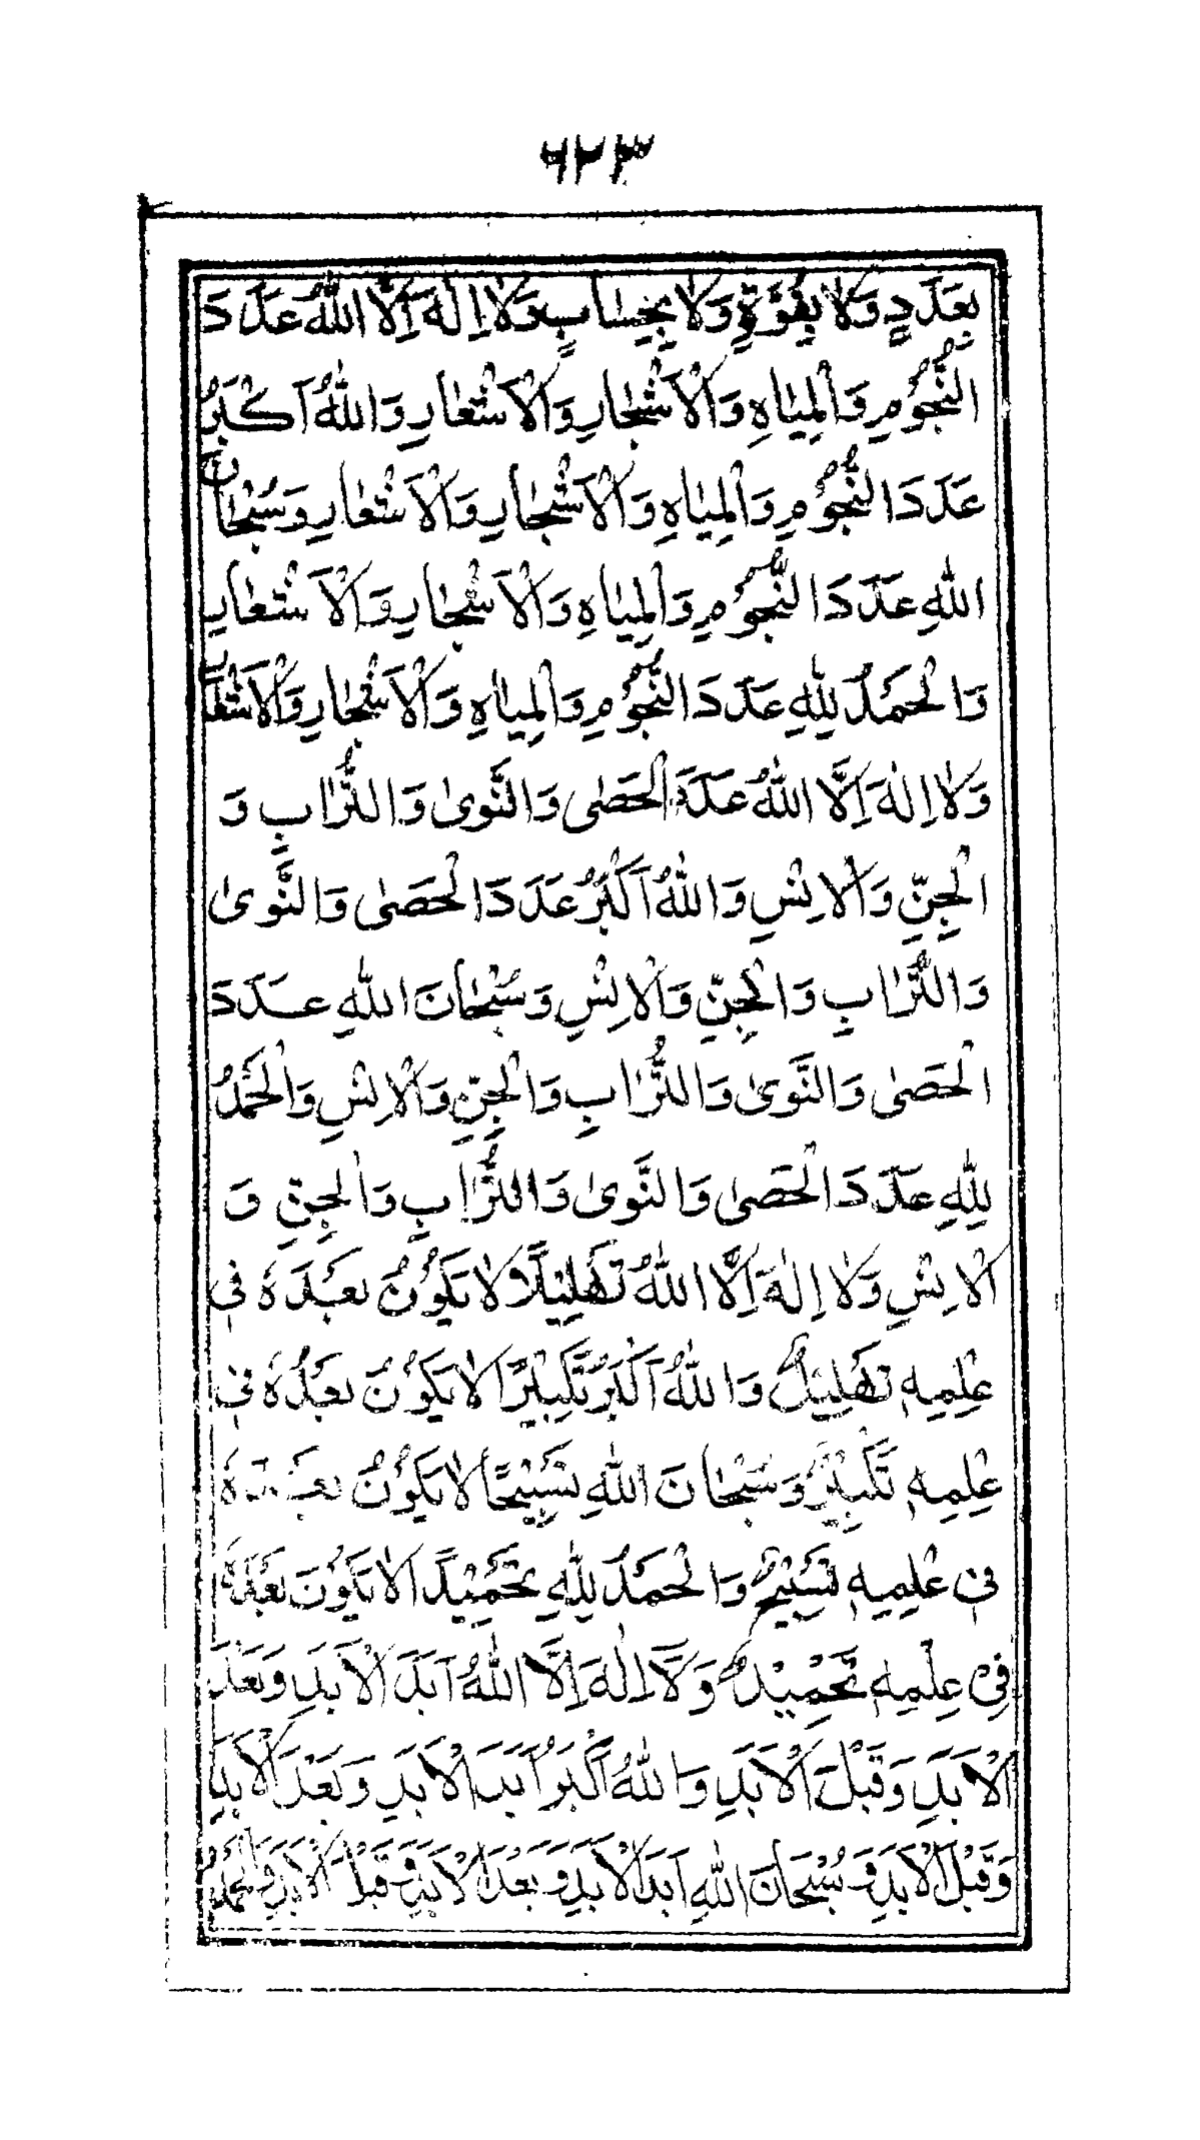 ٦٢٣
بِعَدَدٍ وَلَا بِقُوَّةٍ وَلَا بِحِسَابٍ وَلَا اِلٰهَ اِلَّا اللّٰهُ عَدَدَ
النُّجُوْمِ وَالْمِيَاهِ وَالْاَشْجَارِ وَالْاَشْعَارِ وَاللّٰهُ اَكْبَرُ
عَدَدَ النُّجُوْمِ وَالْمِيَاهِ وَالْاَشْجَارِ وَالْاَشْعَارِ وَسُبْحَانَ
اللّٰهِ عَدَدَ النُّجُوْمِ وَالْمِيَاهِ وَالْاَشْجَارِ وَالْاَشْعَارِ
وَالْحَمْدُ لِلّٰهِ عَدَدَ النُّجُوْمِ وَالْمِيَاهِ وَالْاَشْجَارِ وَالْاَشْعَارِ
وَلَا اِلٰهَ اِلَّا اللّٰهُ عَدَدَ الْحَصٰى وَالنَّوىٰ وَالتُّرَابِ وَ
الْجِنِّ وَالْاِنْسِ وَاللّٰهُ اَكْبَرُ عَدَدَ الْحَصٰى وَالنَّوىٰ
وَالتُّرَابِ وَالْجِنِّ وَالْاِنْسِ وَسُبْحَانَ اللّٰهِ عَدَدَ
الْحَصٰى وَالنَّوىٰ وَالتُّرَابِ وَالْجِنِّ وَالْاِنْسِ وَالْحَمْدُ
لِلّٰهِ عَدَدَ الْحَصٰى وَالنَّوىٰ وَالتُّرَابِ وَالْجِنِّ وَ
الْاِنْسِ وَلَا اِلٰهَ اِلَّا اللّٰهُ تَهْلِيْلًا لَا يَكُوْنُ بَعْدَهٗ فِيْ
عِلْمِهٖ تَهْلِيْلٌ وَاللّٰهُ اَكْبَرُ تَكْبِيْرًا لَا يَكُوْنُ بَعْدَهٗ فِيْ
عِلْمِهٖ تَكْبِيْرٌ وَسُبْحَانَ اللّٰهِ تَسْبِيْحًا لَا يَكُوْنُ بَعْدَهٗ
فِيْ عِلْمِهٖ تَسْبِيْحٌ وَالْحَمْدُ لِلّٰهِ تَحْمِيْدًا لَا يَكُوْنُ بَعْدَهٗ
فِيْ عِلْمِهٖ تَحْمِيْدٌ وَلَا اِلٰهَ اِلَّا اللّٰهُ اَبَدَ الْاَبَدِ وَبَعْدَ
الْاَبَدِ وَقَبْلَ الْاَبَدِ وَاللّٰهُ اَكْبَرُ اَبَدَ الْاَبَدِ وَبَعْدَ الْاَبَدِ
وَقَبْلَ الْاَبَدِ وَسُبْحَانَ اللّٰهِ اَبَدَ الْاَبَدِ وَبَعْدَ الْاَبَدِ وَقَبْلَ الْاَبَدِ وَالْحَمْدُ